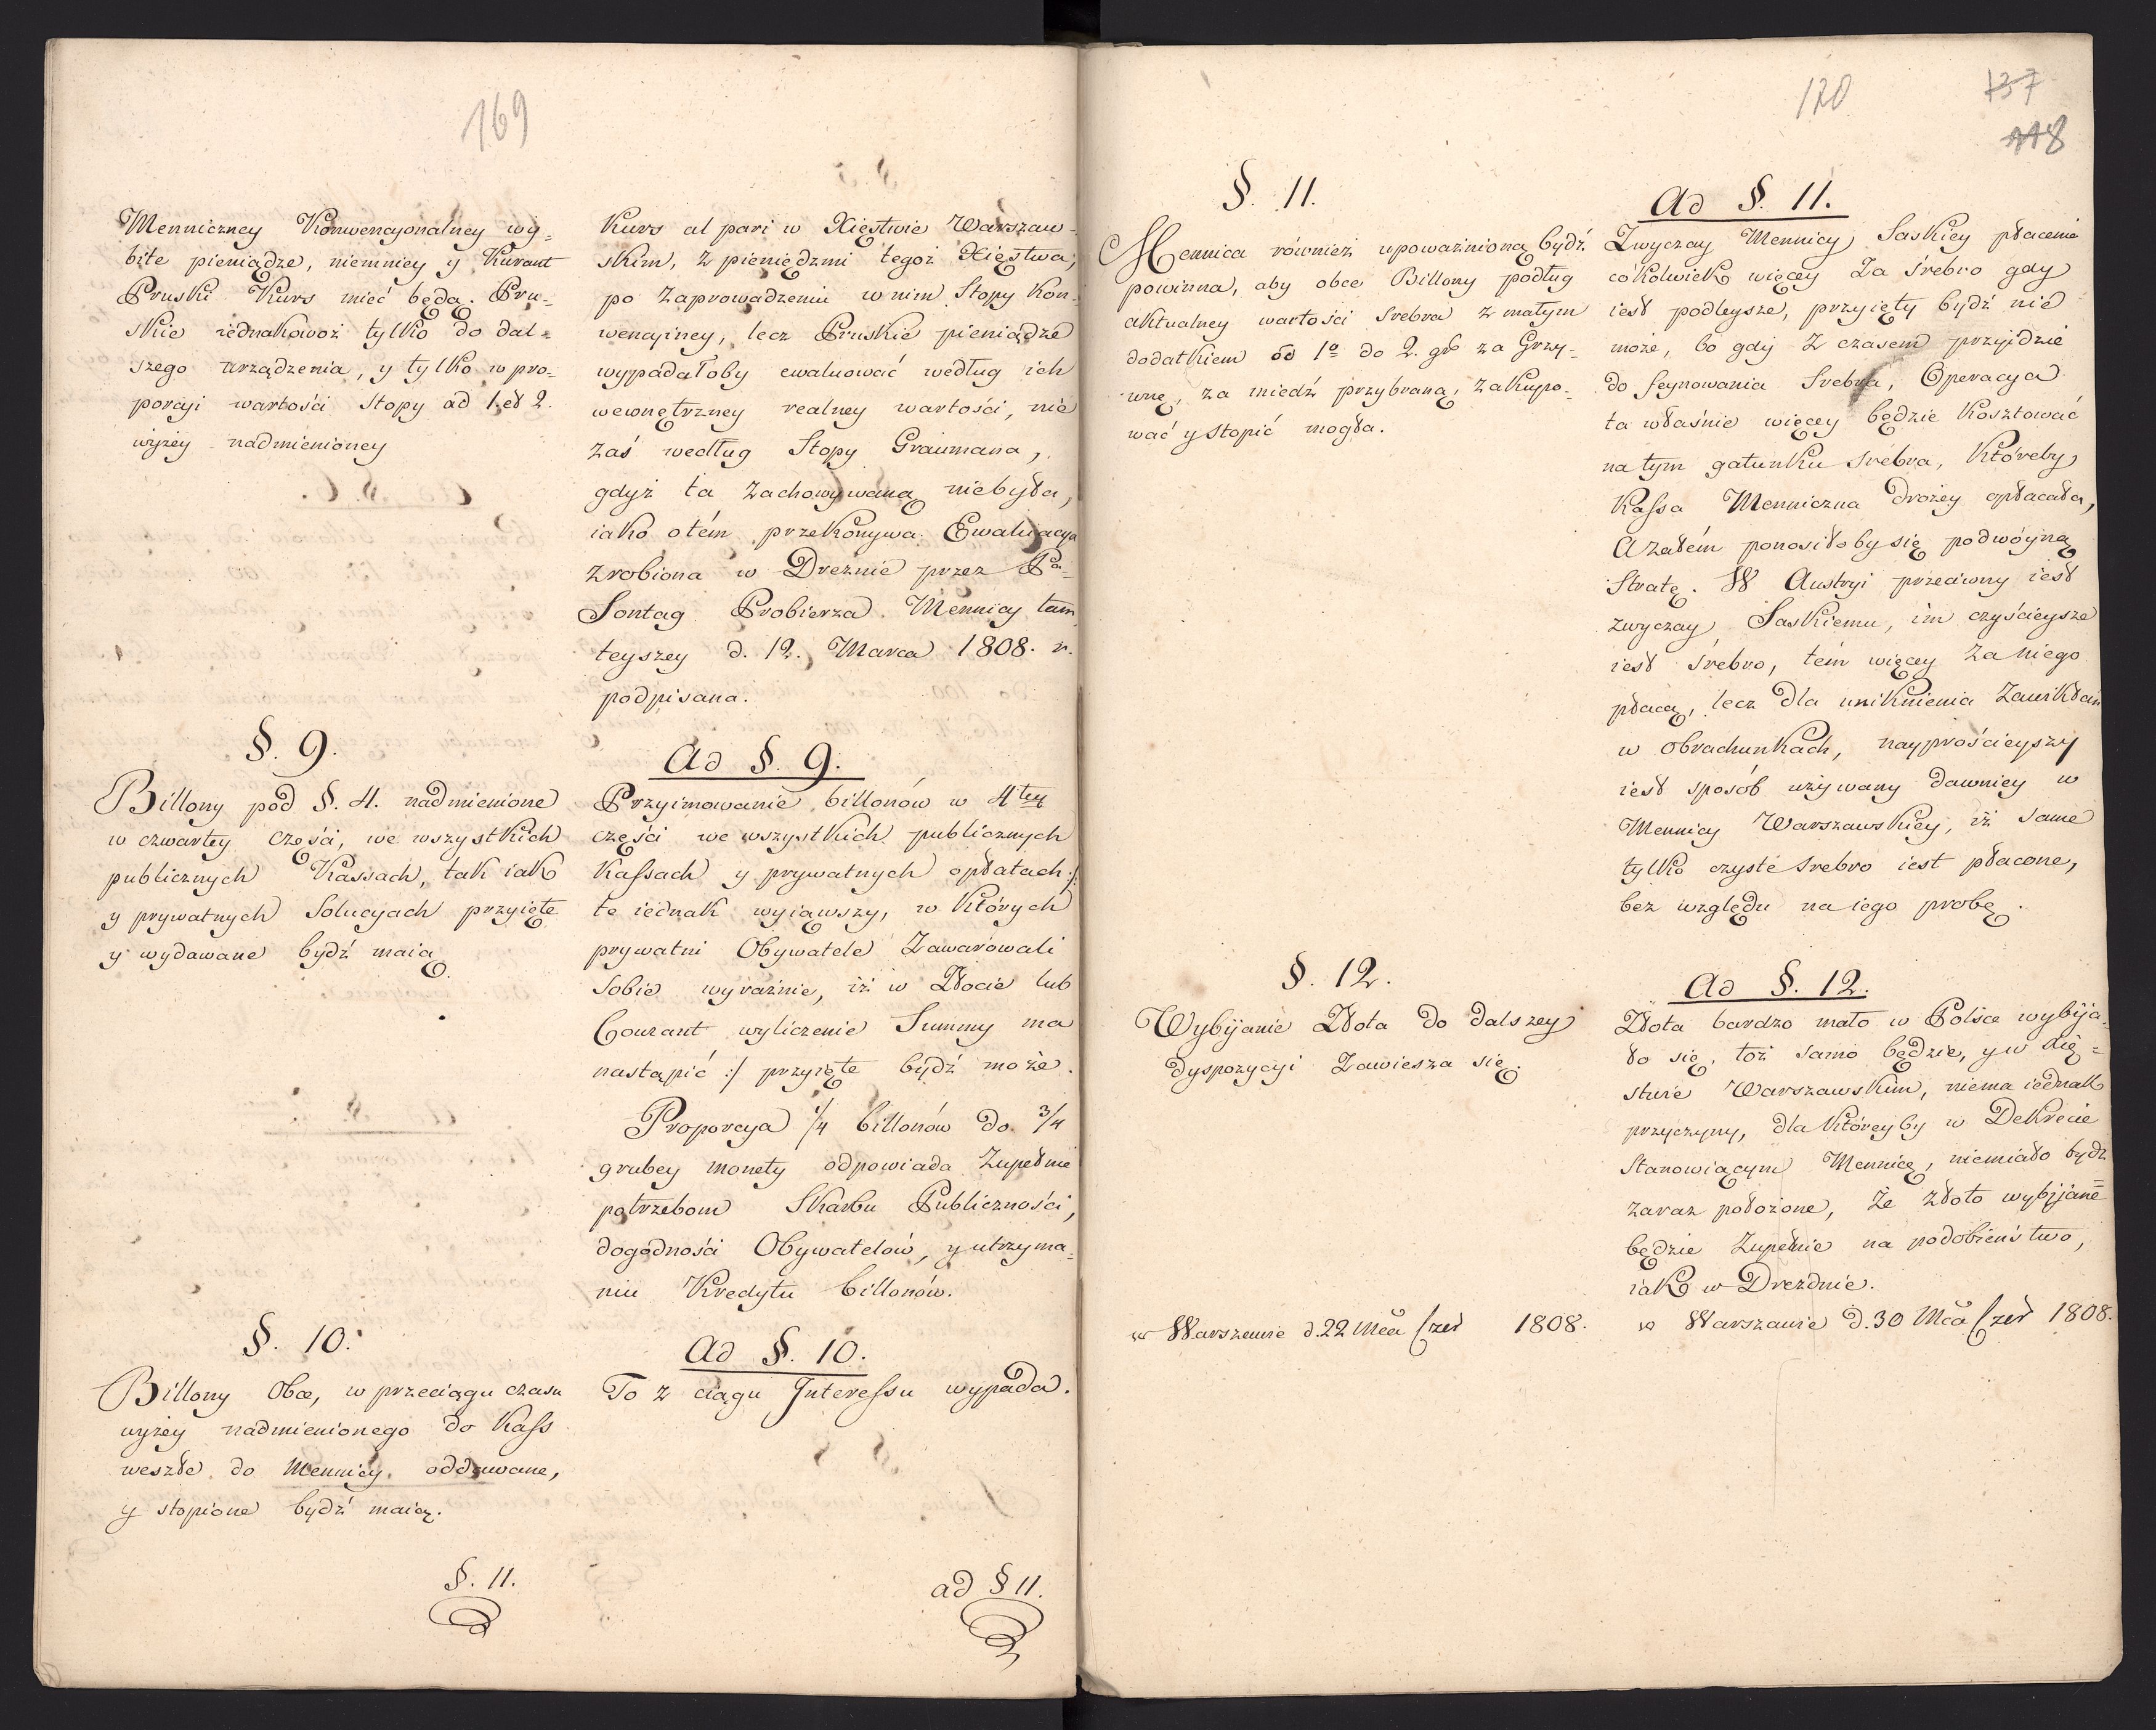 169
Mennicznej Konwencyonalney wy=
bite pieniądze, niemniey y Kurant
Pruski Kurs mieć będą. Pru=
skie iednakowoż tylko do dal=
szego urządzenia, y tylko w pro=
porcyi wartości Stopy ad 1. et 2.
wyżey nadmienioney
§. 9.
Billony pod §. 4. nadmienione
w czwartey części, we wszystkich
publicznych Kassach, tak iak
y prywatnych Solucyach przyięte
y wydawane bydź maią.
§. 10.
Billony Obce, w przeciągu czasu
wyżey nadmienionego do Kass
weszłe do Mennicy oddawane,
y stopione bydź maią.
§. 11.
Kurs al pari w Xięstwie Warszaw=
skim, z pieniędzmi tegoż Xięstwa,
po zaprowadzeniu w nim Stopy Kon=
wencyiney, lecz Pruskie pieniądze
wypadałoby ewaluować według ich
wewnętrzney realney wartości, nie
zaś według Stopy Graumana,
gdyż ta zachowywaną niebyła,
iako o tém przekonywa Ewaluacya
zrobiona w Dreznie przez Pa
Sontag Probierza Mennicy tam
teyszey d. 12. Marca 1808. r.
podpisana.
Ad §. 9.
Przyimowanie billonów w 4tey
części we wszystkich publicznych
Kassach y prywatnych opłatach :/:
te iednak wyiąwszy, w których
prywatni Obywatele zawarowali
sobie wyraźnie, iż w Złocie lub
Courant wyliczenie Summy ma
nastąpić :/ przyięte bydź może.
Proporcya 1/4 billonów do 3/4
grubey monety odpowiada zupełnie
potrzebom Skarbu Publiczności,
dogodności Obywatelów, y utrzyma=
niu Kredytu billonów.
Ad §. 10.
To z ciągu Interessu wypada.
ad § 11.
120
137
118
§. 11.
Mennica również upoważnioną bydź
powinna, aby obce Billony podług
aktualney wartości srebra z małym
dodatkiem od 1o do 2. gr za Grzy=
wnę, za miedź przybraną, zakupo=
wać y stopić mogła.
§. 12.
Wybijanie Złota do dalszey
dyspozycyi zawiesza się.
w Warszawie d. 22 Mca Czer 1808.
Ad §. 11.
Zwyczay Mennicy Saskiey płacenia
cokolwiek więcey za śrebro gdy
iest podleysze, przyięty bydź nie
może, bo gdy z czasem przyjdzie
do feynowania Srebra, Operacya
ta właśnie więcey będzie kosztować
na tym gatunku srebra, któreby
Kassa Menniczna drożey opłacała,
A zatém ponosiłoby się podwóyną
Stratę. W Austryi przeciwny iest
zwyczay Saskiemu, im czyścieysze
iest śrebro, tém więcey za niego
płacą, lecz dla uniknienia zawikłań
w obrachunkach, nayprościeyszy
iest sposób używany dawniey w
Mennicy Warszawskiey, iż same
tylko czyste srebro iest płacone,
bez względu na iego probę.
Ad §. 12.
Złota bardzo mało w Polsce wybija=
ło się, toż samo będzie, y w Xię=
stwie Warszawskim, niema iednak
przyczyny, dla któreyby w Dekrecie
Stanowiącym Mennicę, niemiało bydź
zaraz położone, że złoto wybijane
będzie zupełnie na podobieństwo,
iak w Dreźdnie.
w Warszawie d. 30 Mca Czer 1808.